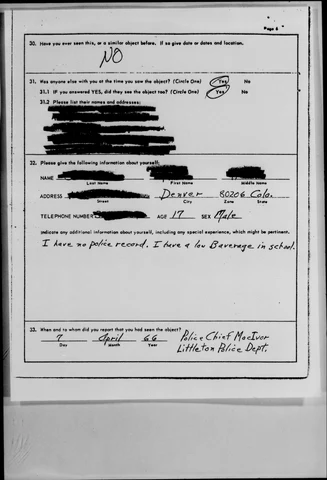 Page 8
30. Have you ever seen this, or a similar object before. If so give date or dates and location.
NO
31. Was anyone else with you at the time you saw the object? (Circle One) Yes No
31.1 If you answered YES, did they see the object too? (Circle One) Yes No
31.2 Please list their names and addresses:
32. Please give the following information about yourself:
NAME
Last Name First Name Middle Name
ADDRESS Denver 80206 Colo.
Street City Zone State
TELEPHONE NUMBER AGE 17 SEX Male
Indicate any additional information about yourself, including any special experience, which might be pertinent.
I have no police record. I have a low B average in school.
33. When and to whom did you report that you had seen the object?
7 April 66 Police Chief MacIvor
Day Month Year Littleton Police Dept.